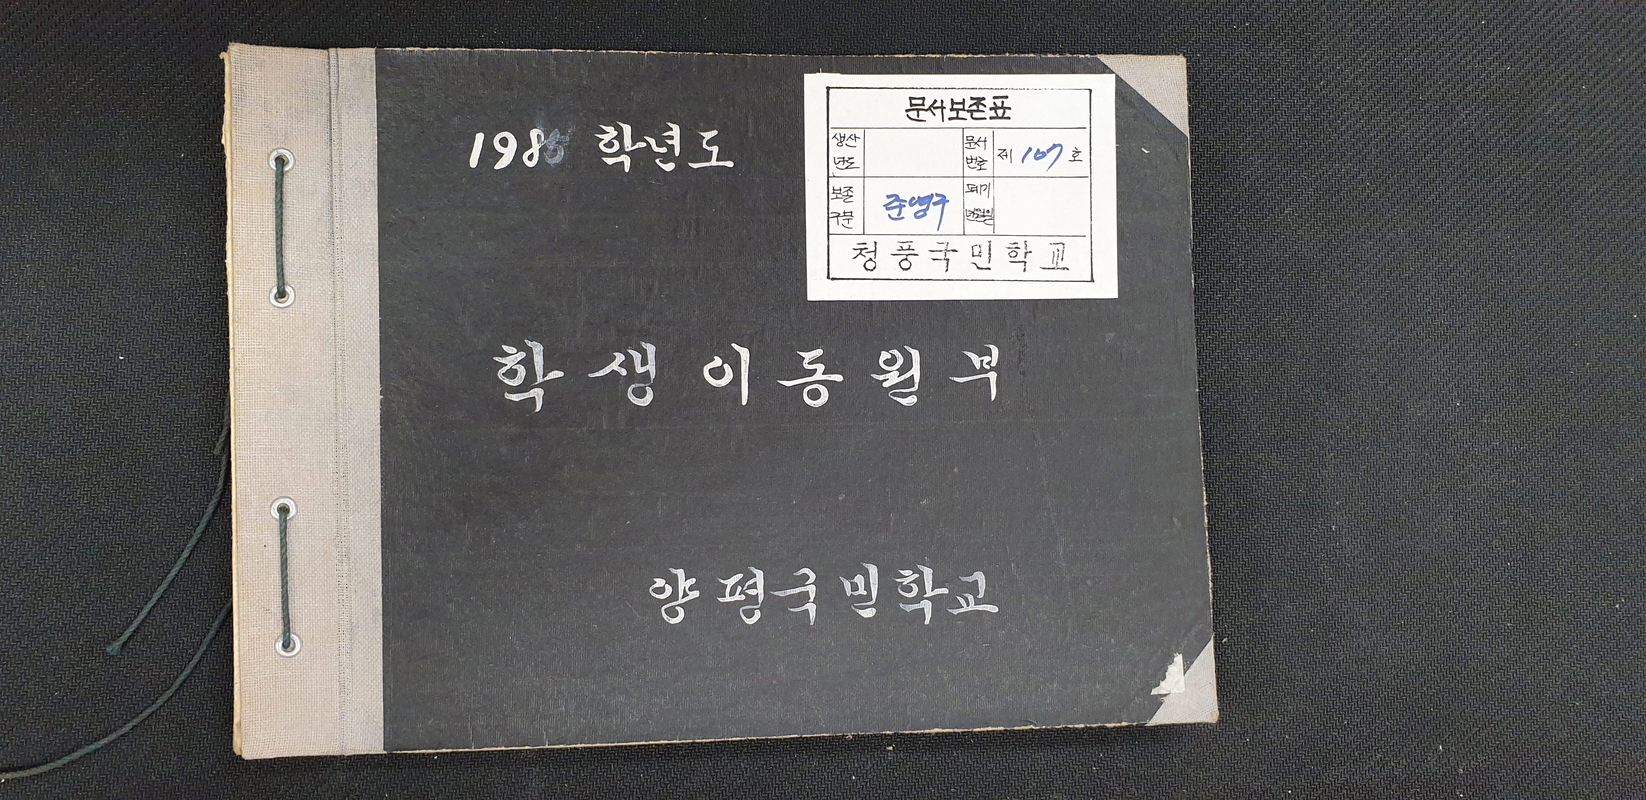 198 학년도
문서보존표
생산년도
문서번호 제 107 호
보존구분 준영구
폐기
청풍국민학교
학생이동원부
양평국민학교